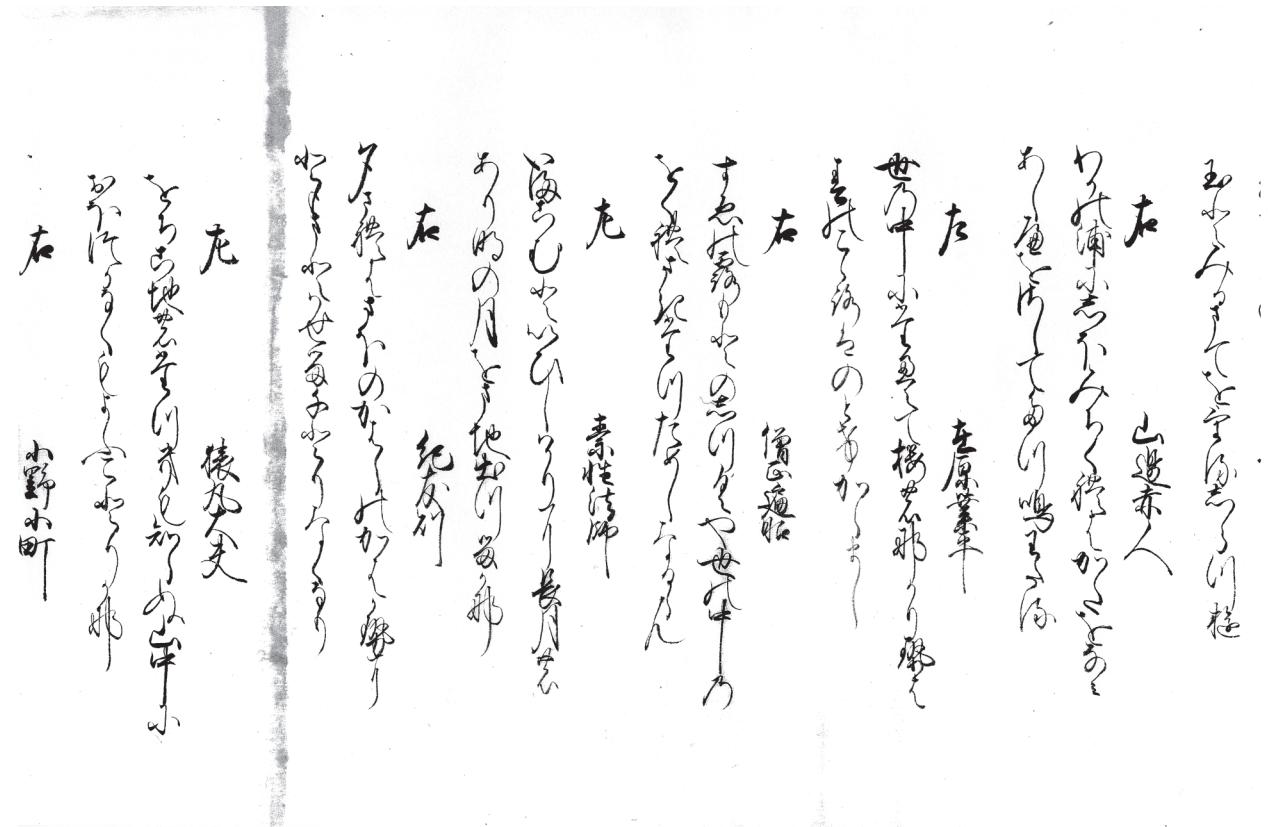 玉とみるまてをける志らつゆ
右 山邊赤人
わかの浦に志ほみちくれはかたをなみ
あし邊をさしてたつ鳴わたる
左 在原業平
世の中にたえて桜のなかりせは
春のこころはのとけからまし
右 僧正遍昭
すゑの露もとの志つくや世の中の
をくれさきたつためしなるらん
左 素性法師
いまこむといひしはかりに長月の
あり明の月をまち出つるかな
右 紀友則
夕されはさほのかはらのかはきりに
ともまとはせる千とりなくなり
左 猿丸大夫
をちこちのたつきも知らぬ山中に
おほつかなくもよふことりかな
右 小野小町